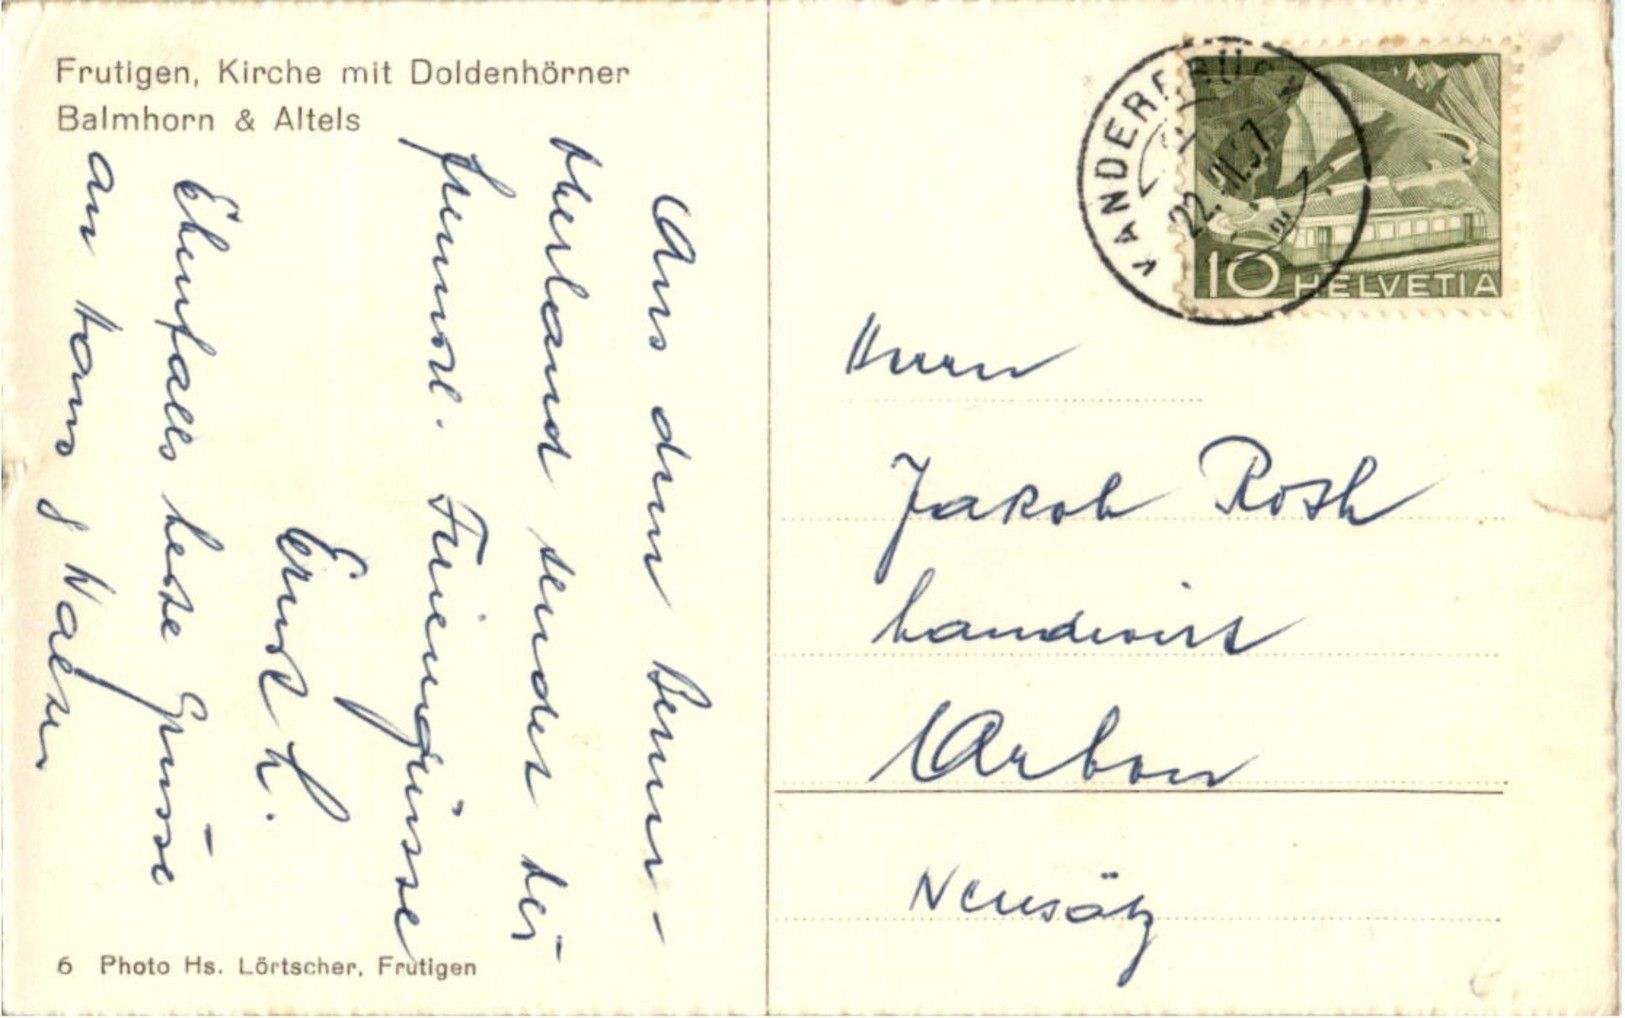 Frutigen, Kirche mit Doldenhörner
Balmhorn & Altels
Aus dem Berner-
oberland sendet dir
freundl. Feriengrüsse
Ernst H.
Ebenfalls beste Grüsse
an Hans
6 Photo Hs. Lörtscher, Frutigen
KANDERBRÜCK
22. 57
10 HELVETIA
Herrn
Jakob Roth
Landwirt
Arbon
Neusätz